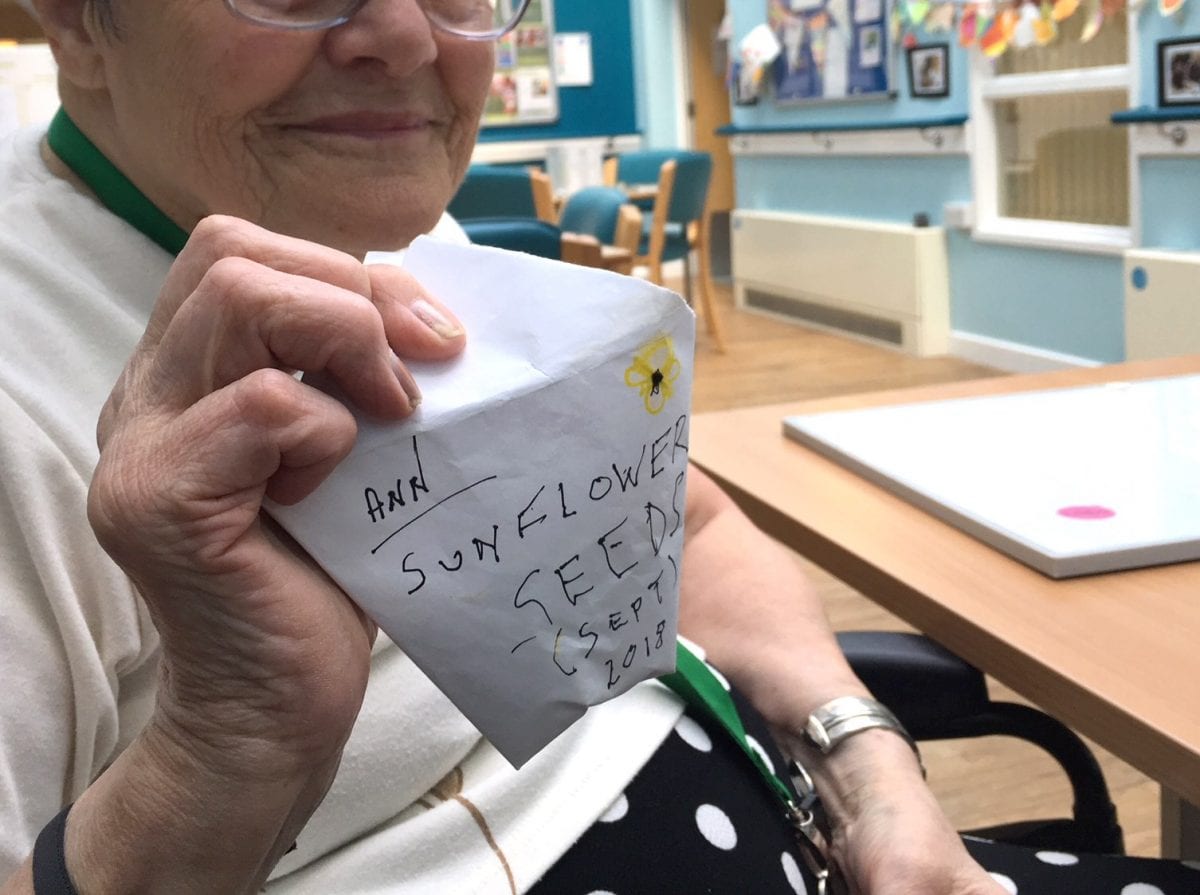 ANN
SUNFLOWER
SEEDS
(SEPT)
2018